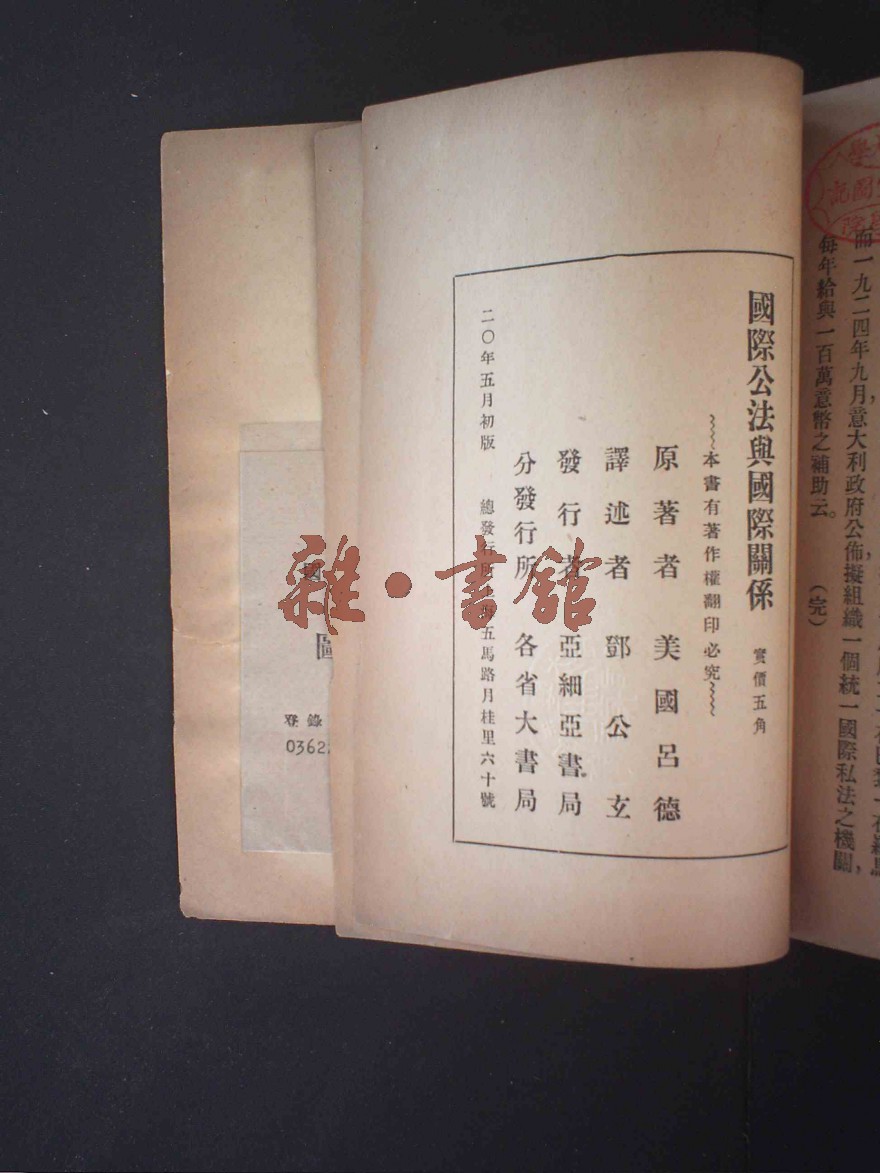 而一九二四年九月，意大利政府公佈擬組織一個統一國際私法之機關，
每年給與一百萬意幣之補助云。　（完）
國際公法與國際關係　實價五角
本書有著作權翻印必究
原著者　美國呂德
譯述者　鄧公玄
發行者　亞細亞書局
分發行所　各省大書局
二〇年五月初版　總發行所上海五馬路月桂里六十號
雜·書館
登錄
0362